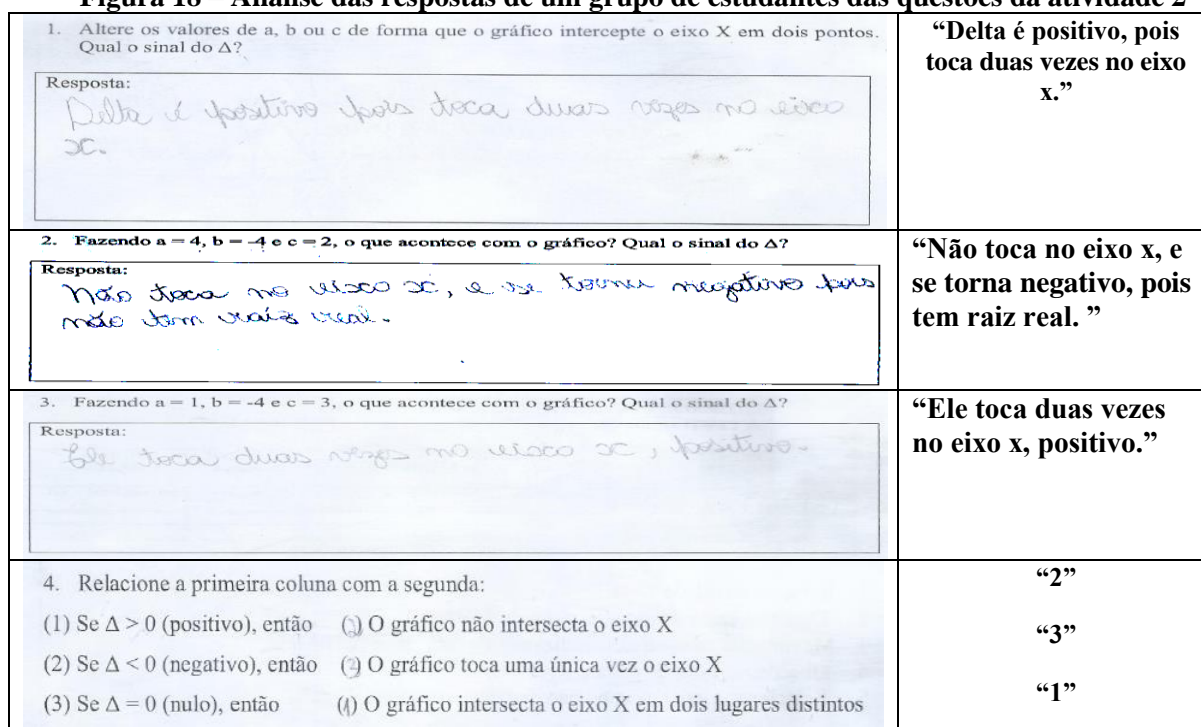 Figura 18 – Análise das respostas de um grupo de estudantes das questões da atividade 2
1. Altere os valores de a, b ou c de forma que o gráfico intercepte o eixo X em dois pontos.
Qual o sinal do Δ?
Resposta:
Delta é positivo pois toca duas vezes no eixo
x.
“Delta é positivo, pois
toca duas vezes no eixo
x.”
2. Fazendo a = 4, b = -4 e c = 2, o que acontece com o gráfico? Qual o sinal do Δ?
Resposta:
Não toca no eixo x, e se torna negativo pois
não tem raiz real.
“Não toca no eixo x, e
se torna negativo, pois
tem raiz real. ”
3. Fazendo a = 1, b = -4 e c = 3, o que acontece com o gráfico? Qual o sinal do Δ?
Resposta:
Ele toca duas vezes no eixo x, positivo.
“Ele toca duas vezes
no eixo x, positivo.”
4. Relacione a primeira coluna com a segunda:
(1) Se Δ > 0 (positivo), então ( ) O gráfico não intersecta o eixo X
(2) Se Δ < 0 (negativo), então ( ) O gráfico toca uma única vez o eixo X
(3) Se Δ = 0 (nulo), então (1) O gráfico intersecta o eixo X em dois lugares distintos
“2”
“3”
“1”